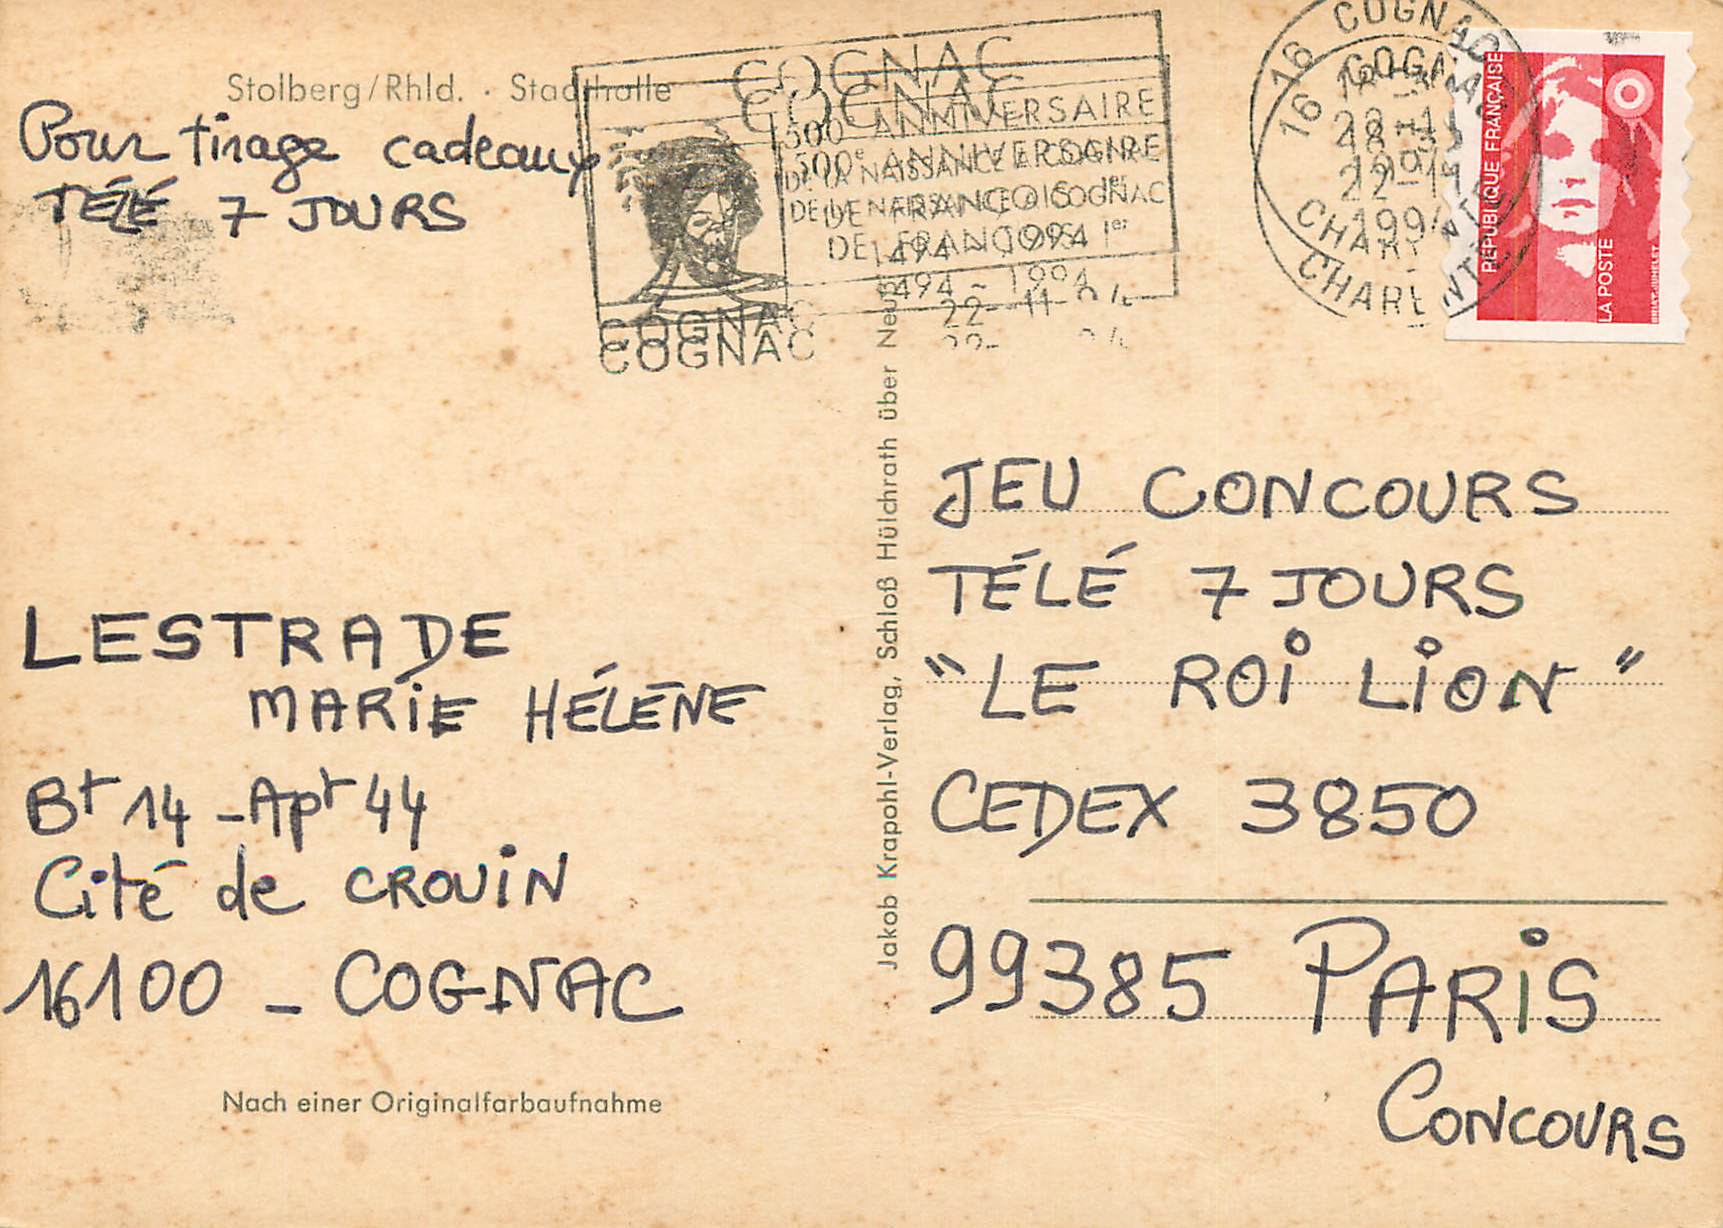 Stolberg/Rhld. · Stadthalle
Pour tirage cadeaux
TÉLÉ 7 JOURS
LESTRADE
MARIE HÉLÈNE
Bt 14 - Apt 44
Cité de CROUIN
16100 - COGNAC
Nach einer Originalfarbaufnahme
Jakob Krapohl-Verlag, Schloß Hülchrath über Neuß
COGNAC
COGNAC
500e ANNIVERSAIRE
500e ANNIVERSAIRE
DE LA NAISSANCE A COGNAC
DE FRANCOIS 1er
1494 - 1994
1494 - 1994
22-11
COGNAC
COGNAC
16 COGNAC
16 COGNAC
22-11
1994
CHARENTE
CHARENTE
RÉPUBLIQUE FRANÇAISE
LA POSTE
BRIAT-JUMELET
JEU CONCOURS
TÉLÉ 7 JOURS
"LE ROI LION"
CEDEX 3850
99385 PARIS
CONCOURS